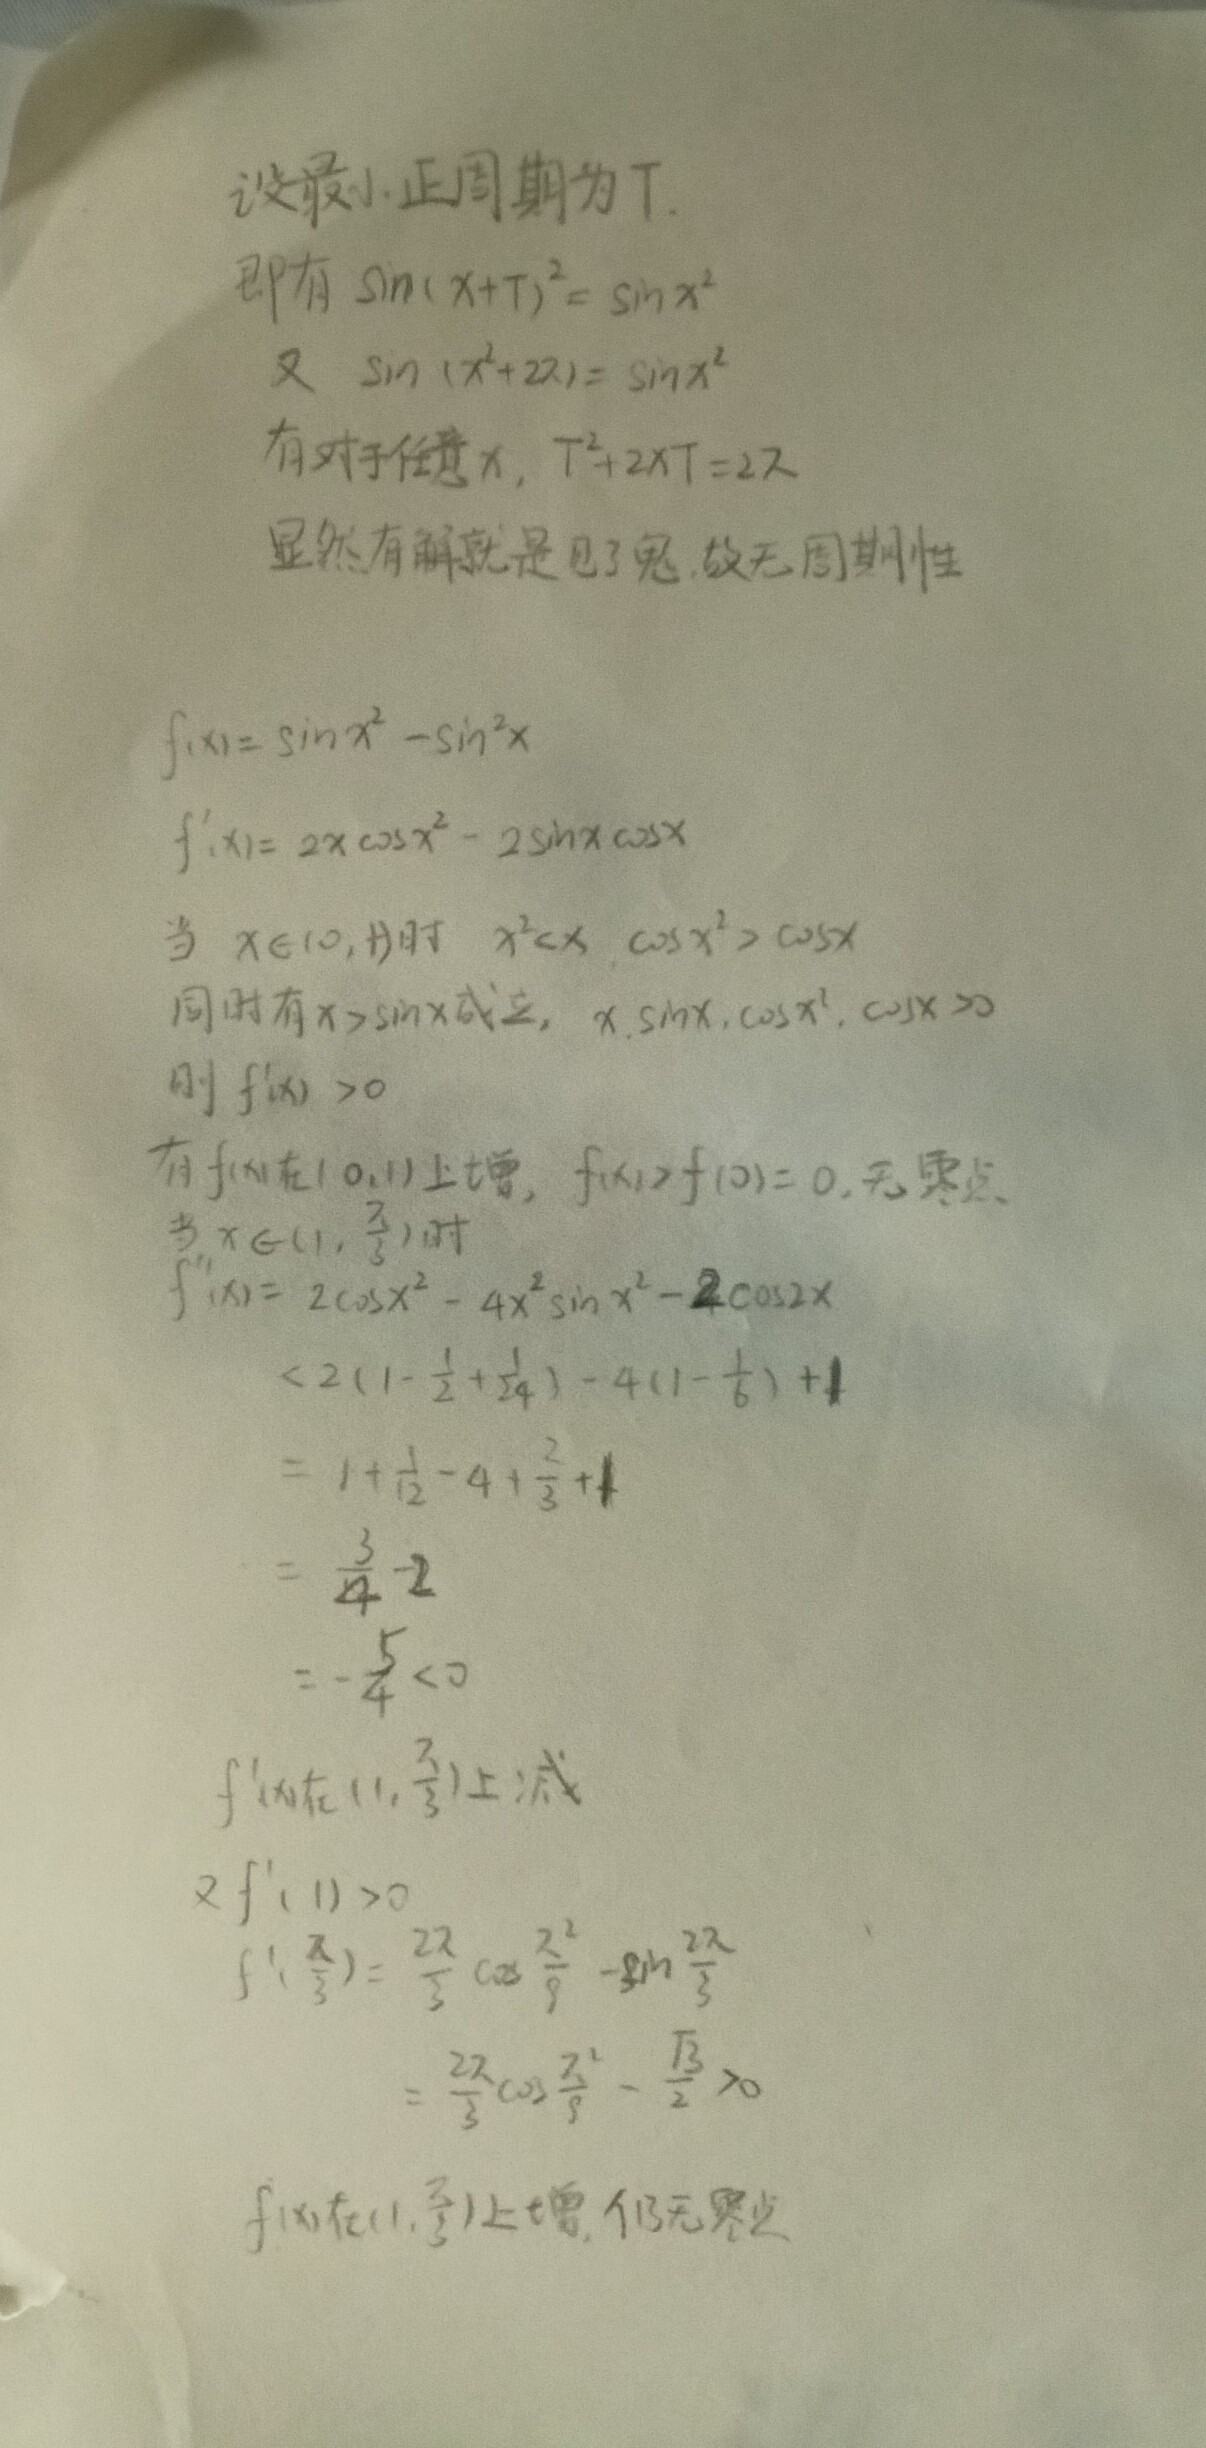 设最小正周期为T.
即有 sin(x+T)²=sinx²
又 sin(x²+2π)=sinx²
有对于任意x, T²+2xT=2π
显然有解就是见了鬼.故无周期性
f(x)=sinx²-sin²x
f'(x)=2xcosx²-2sinxcosx
当 x∈(0,1)时 x²<x, cosx²>cosx
同时有x>sinx成立, x.sinx.cosx².cosx>0
则 f'(x)>0
有f(x)在(0,1)上增, f(x)>f(0)=0,无零点、
当x∈(1,π/3)时
f''(x)=2cosx²-4x²sinx²-2cos2x
<2(1-1/2+1/24)-4(1-1/6)+1
=1+1/12-4+2/3+1
=3/4-2
=-5/4<0
f'(x)在(1,π/3)上减
又f'(1)>0
f'(π/3)=2π/3 cos π²/9 -sin 2π/3
=2π/3 cos π²/9 - √3/2 >0
f(x)在(1,π/3)上增,仍无零点